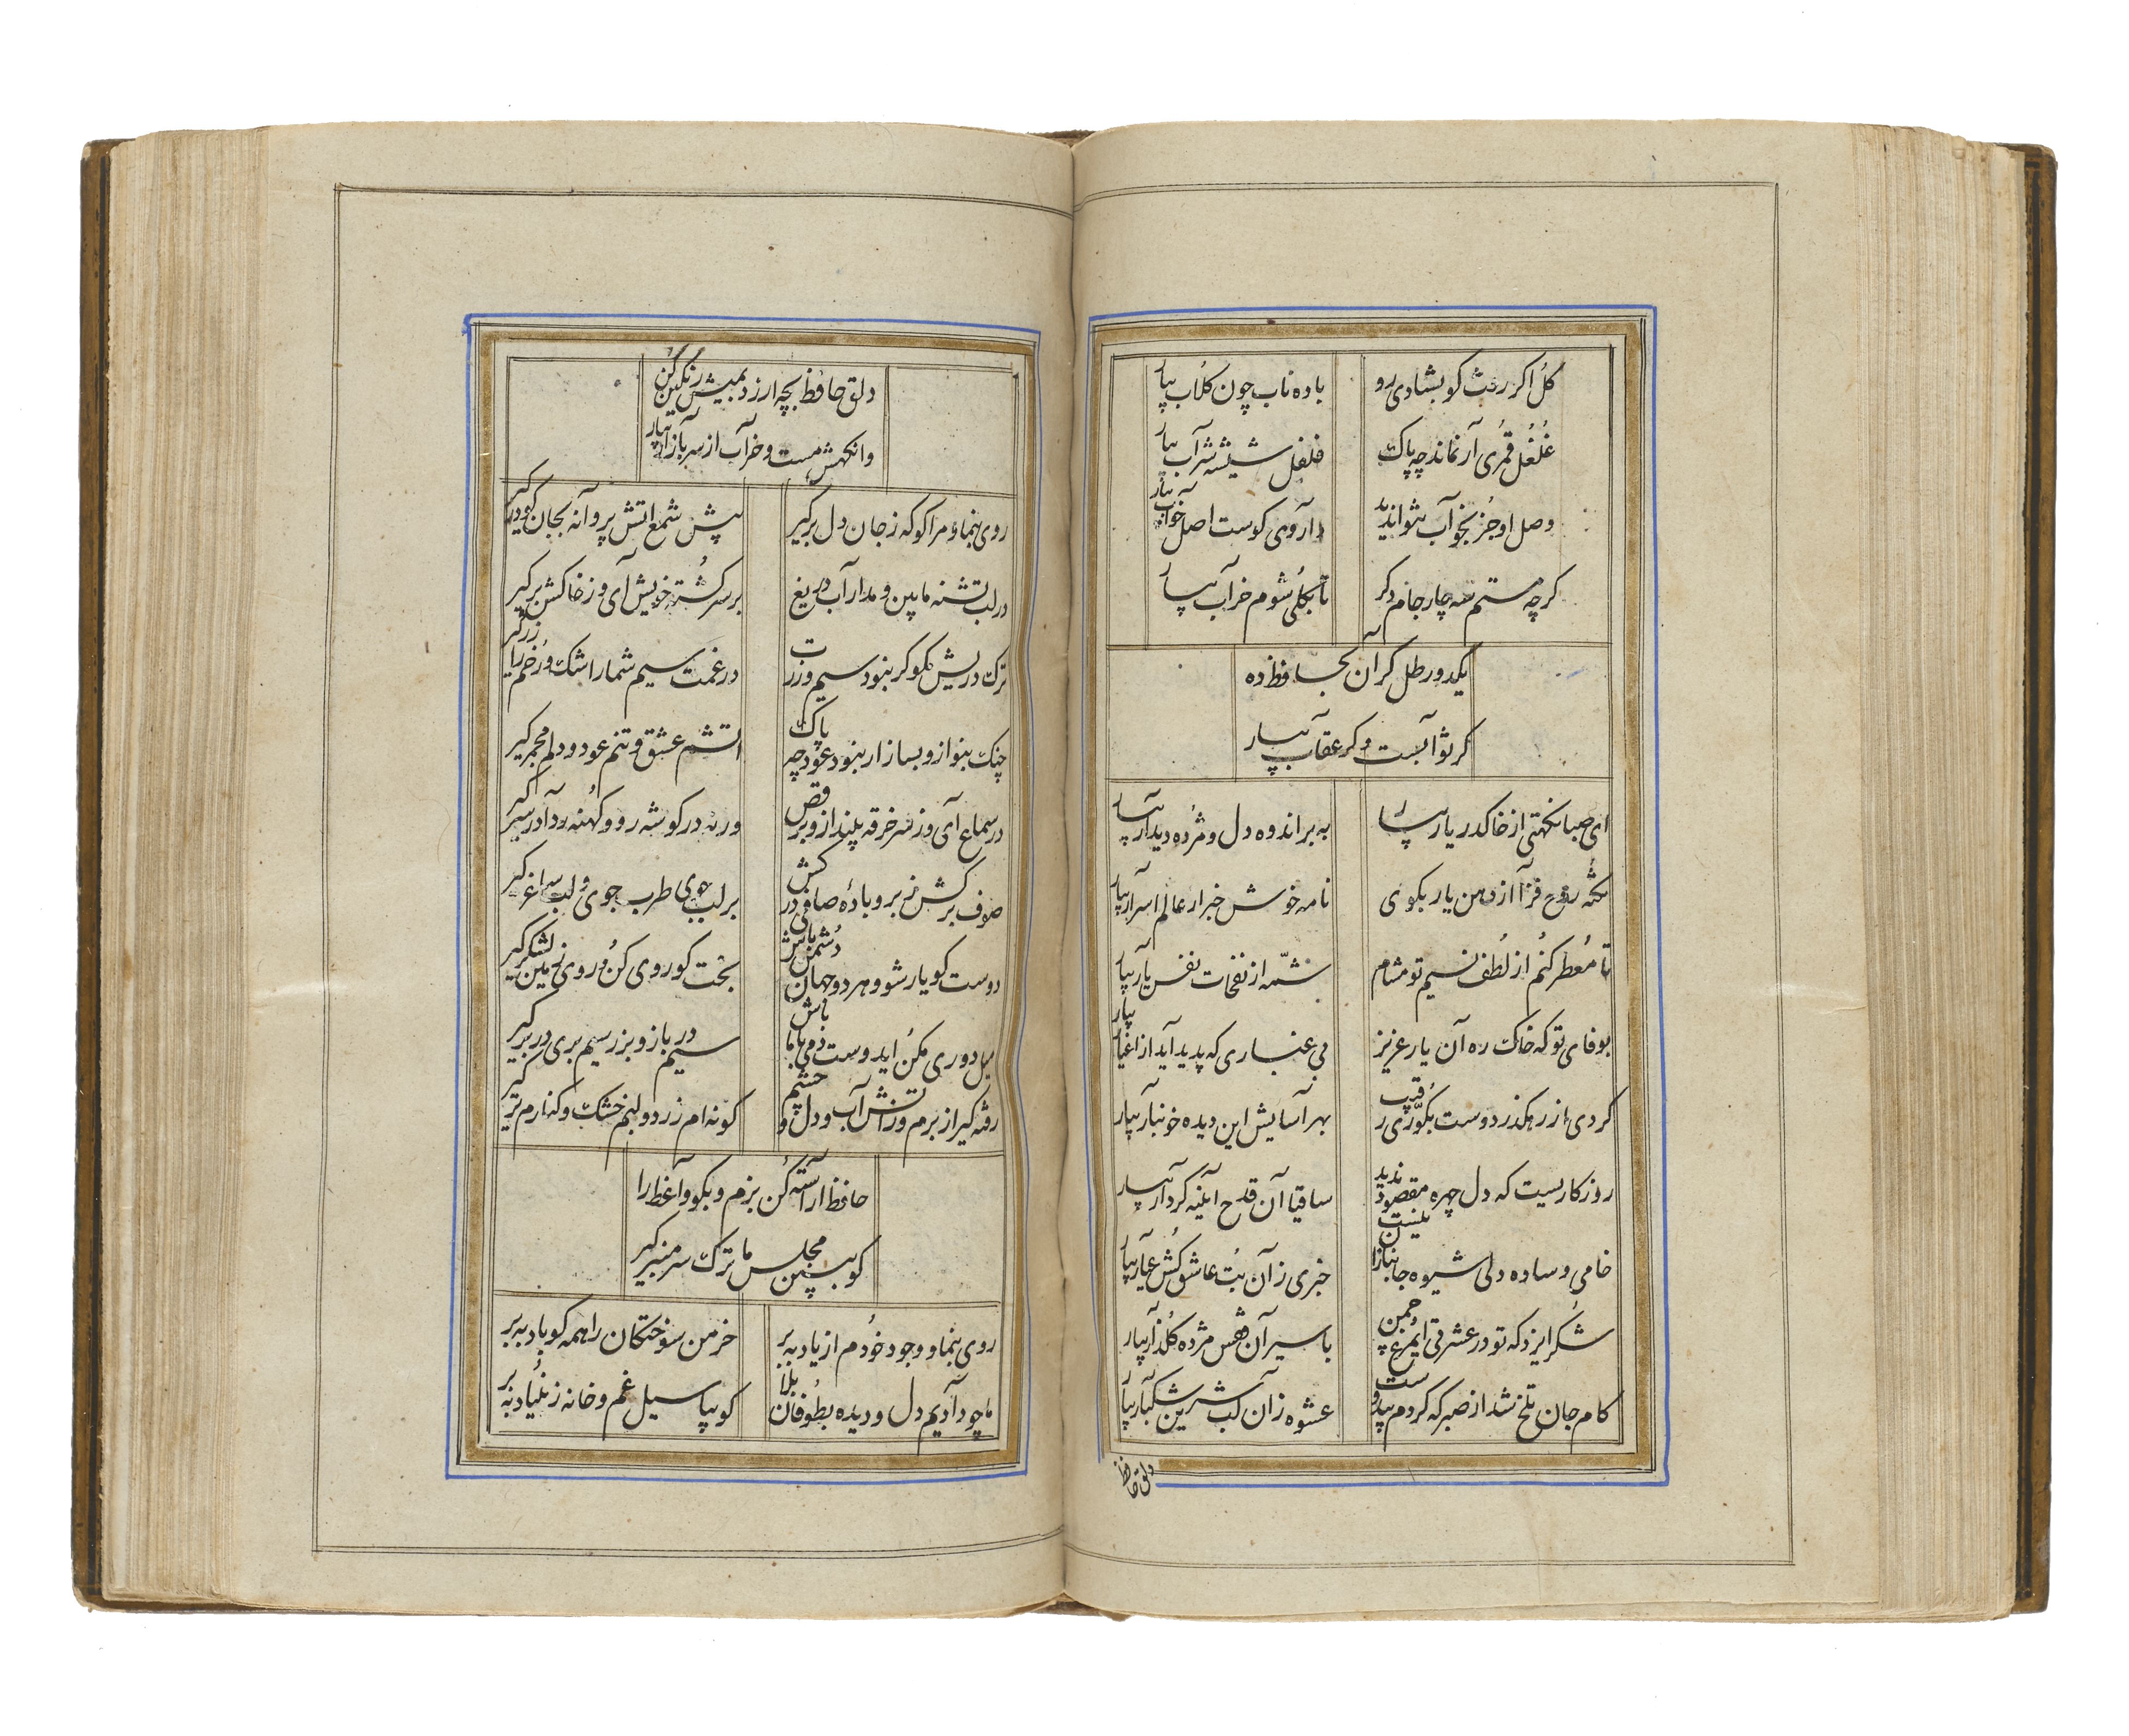 کل اگر رفت کو بشادی رو باده ناب چون کلاب بیار
غلغل قمری آر نماند چه پاک قلقل شیشه شراب بیار
وصل او جز بخواب نتواندید داروی کوست اصل خواب بیار
کرچه مستم سه چار جام دکر تا بکلی شوم خراب بیار
یکدو رطل کران بحافظ ده
کر ثوابست و کر عقاب بیار
ای صبا نکهتی از خاک در یار بیار ببر اندوه دل و مژده دیدار بیار
نکته روح فزا از دهن یار بکوی نامه خوش خبر از عالم اسرار بیار
تا معطر کنم از لطف نسیم تو مشام شمه از نفحات نفس یار بیار
بوفای تو که خاک ره آن یار عزیز بی غباری که پدید آید از اغیار بیار
کردی از رهکذر دوست بکوری رقیب بهر آسایش این دیده خونبار بیار
روزکاریست که دل چهره مقصود ندید ساقیا آن قدح آینه کردار بیار
خامی و ساده دلی شیوه جانبازان نیست خبری زآن بت عاشق کش عیار بیار
شکر ایزد که تو در عشرتی ایمرغ چمن باسیران قفس مژده کلزار بیار
کام جان تلخ شد از صبر که کردم بیدوست عشوه زآن لب شیرین شکربار بیار
دلق حافظ
دلق حافظ بچه ارزد بمیش رنکین کن
وانکهش مست و خراب از سر بازار بیار
روی بنما و مرا کو که ز جان دل برکیر پیش شمع اتش پروانه بجان کو درکیر
در لب تشنه ما بین و مدار آب دریغ بر سر کشته خویش آی و ز خاکش برکیر
ترک درویش مکو کر نبود سیم و زرت در غمت سیم شمار اشک و رخم را زر کیر
چنک بنواز و بساز ار نبود عود چه پاک اتشم عشق و تنم عود و دلم مجمر کیر
در سماع آی و ز سر خرقه بینداز و برقص ورنه در کوشه رو و کهنه ردا در سر کیر
صوف برکش ز بر و باده صافی درکش
دوست کو یار شو و هر دو جهان دشمن باش بخت کو روی کن و روی زمین لشکر کیر
میل دوری مکن ایدوست دمی با ما باش
رفته کیر از برم وز آتش آب و دل و چشم کونه ام زرد و لبم خشک و کنارم تر کیر
حافظ آراسته کن بزم و بکو واعظ را
کو ببین مجلس ما ترک سر منبر کیر
روی بنما و وجود خودم از یاد ببر خرمن سوختکان را همه کو باد ببر
ما چو دادیم دل و دیده بطوفان بلا کو بیا سیل غم و خانه ز بنیاد ببر